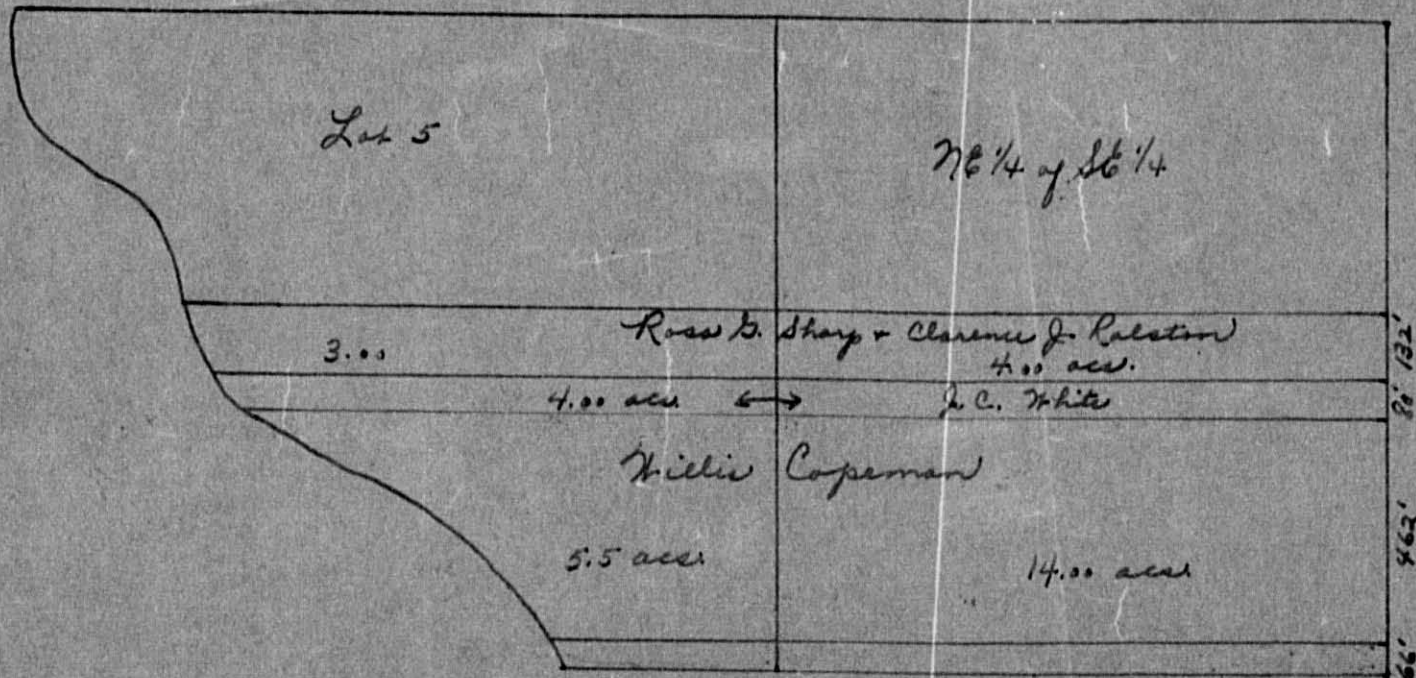 Lot 5
NE 1/4 of SE 1/4
Ross G. Sharp + Clarence J. Ralston
3.00
4.00 acs.
132'
4.00 acs. ↔ J. C. White
80'
Willis Copeman
5.5 acs.
14.00 acs.
462'
66'